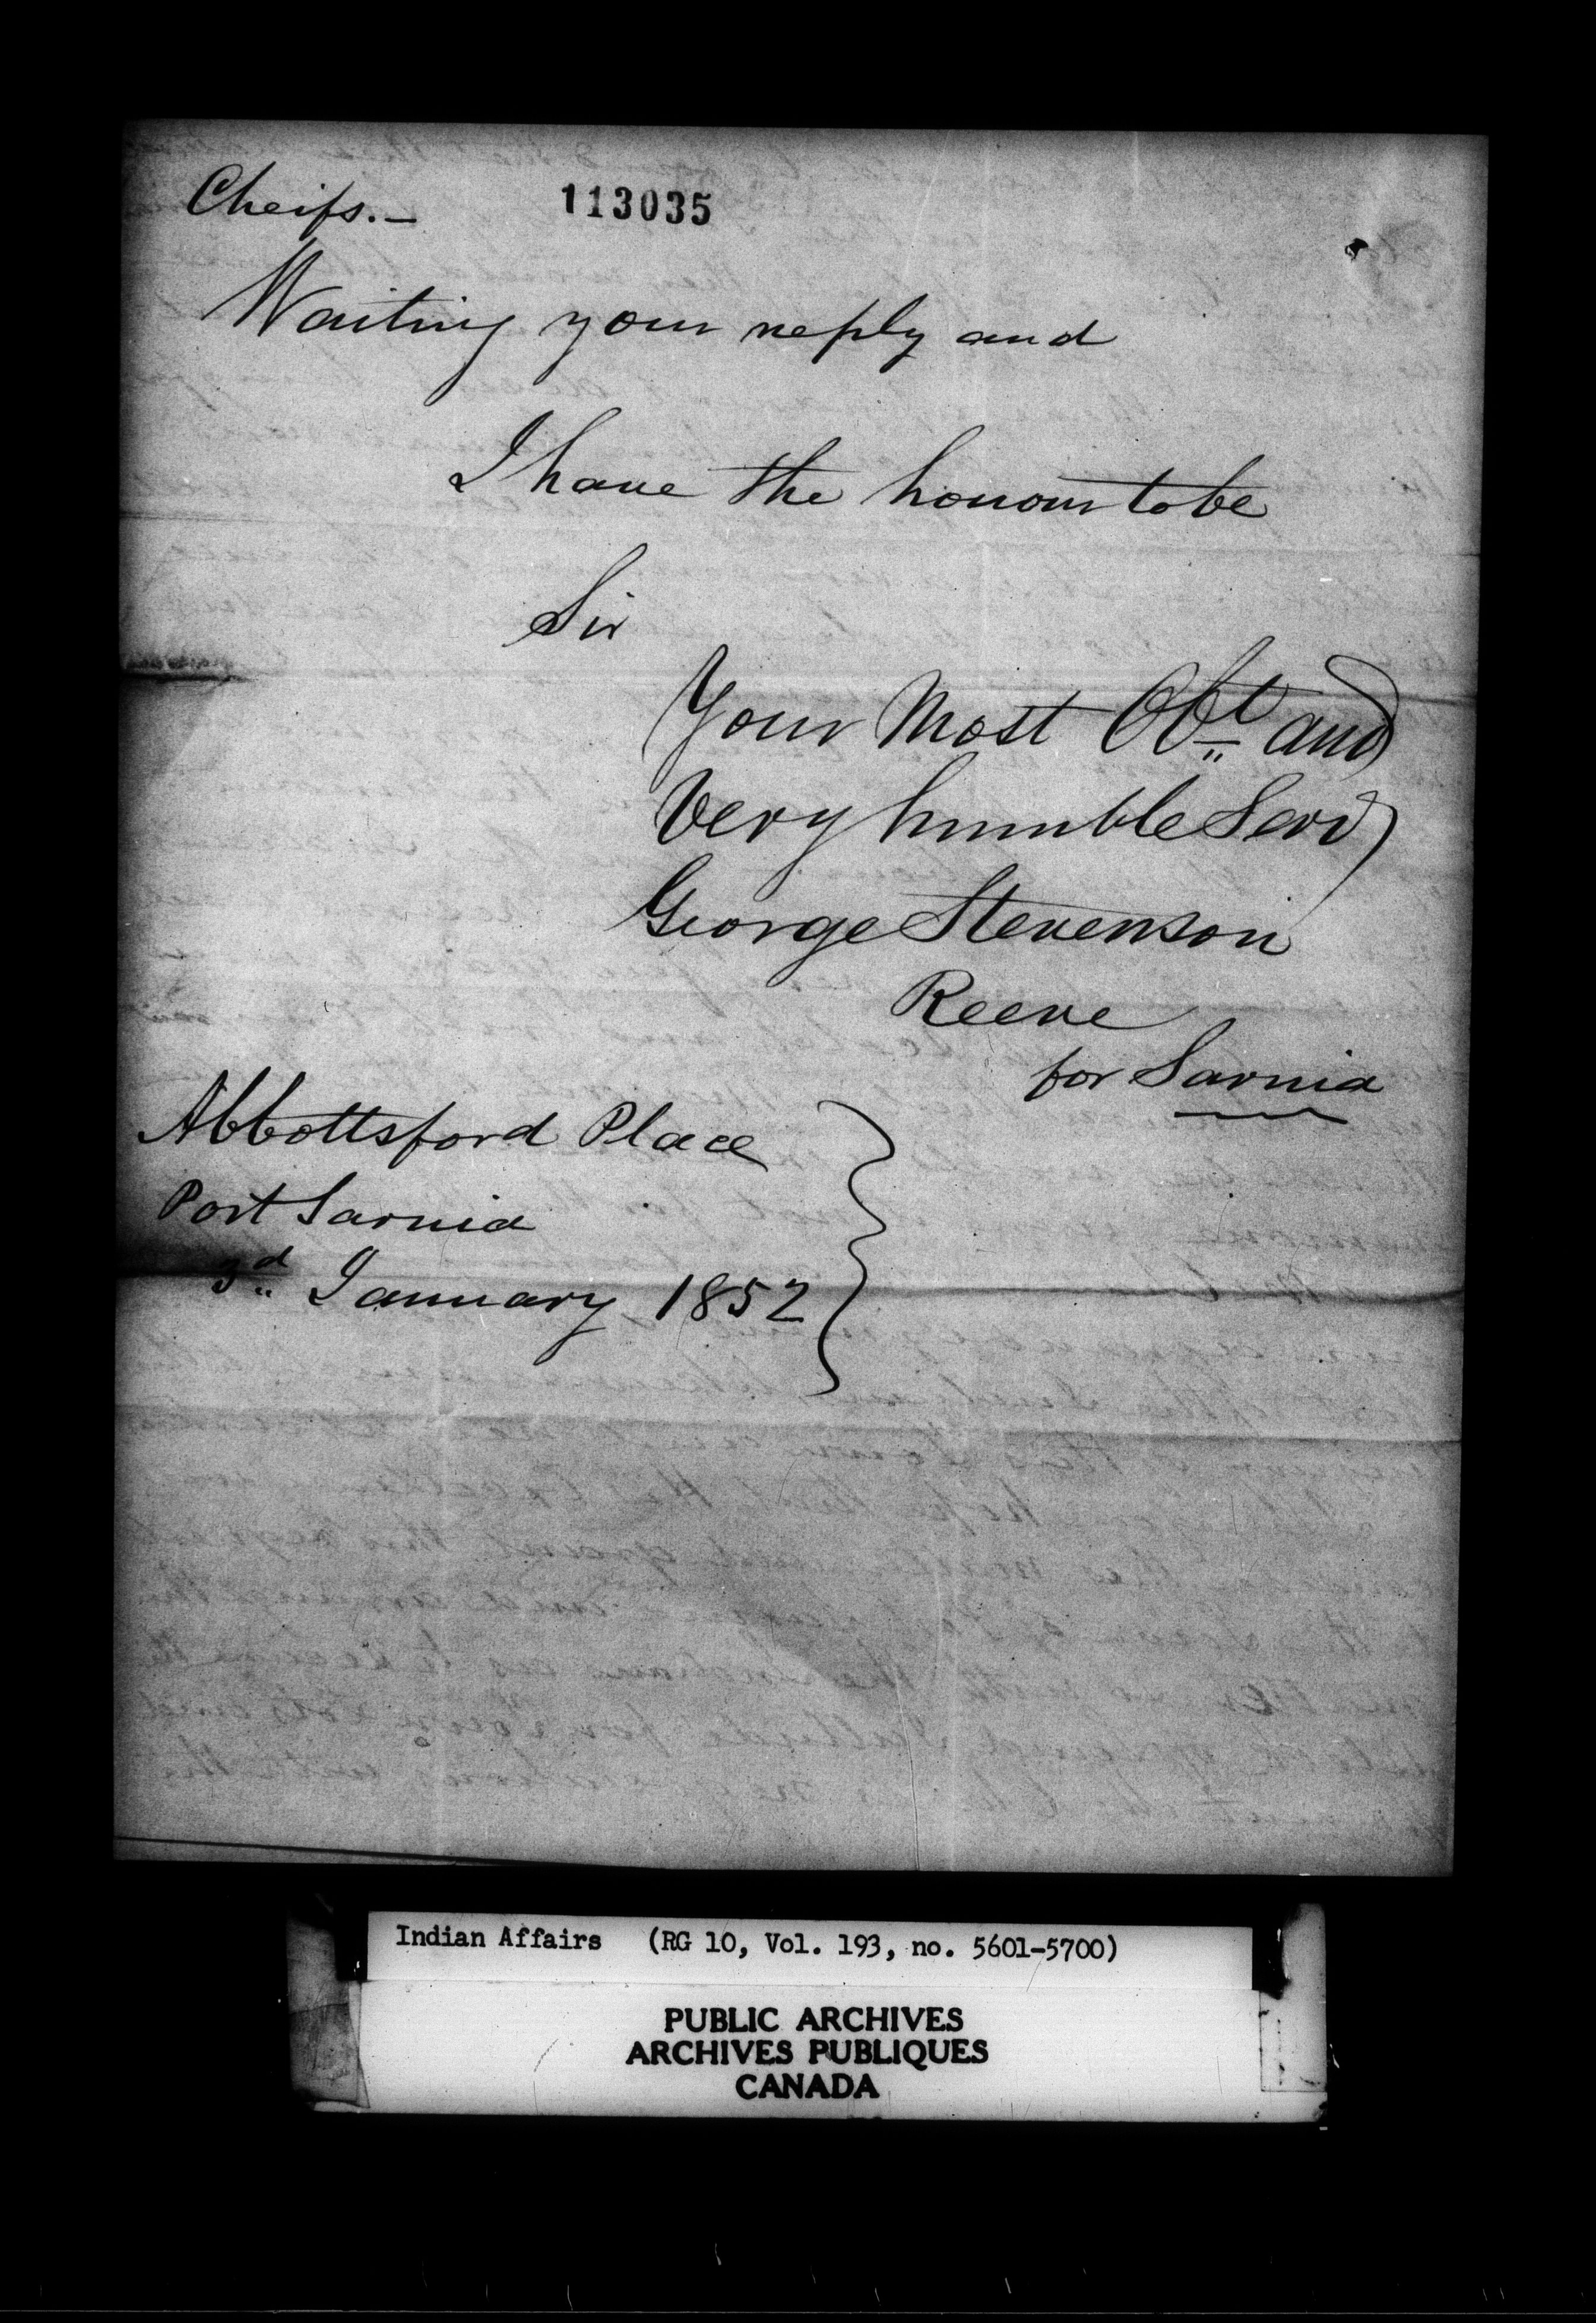 Cheifs.—
113035
Waiting your reply and
I have the honour to be
Sir
Your Most Obt and
Very humble Serv
George Stevenson
Reeve
for Sarnia
Abbottsford Place
Port Sarnia
3d January 1852
Indian Affairs (RG 10, Vol. 193, no. 5601-5700)
PUBLIC ARCHIVES
ARCHIVES PUBLIQUES
CANADA